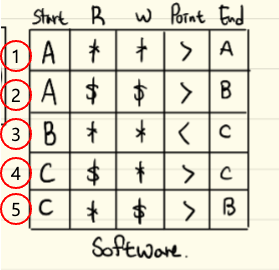 Start R W Point End
1 A * * > A
2 A $ $ > B
3 B * * < C
4 C $ * > C
5 C * $ > B
Software.